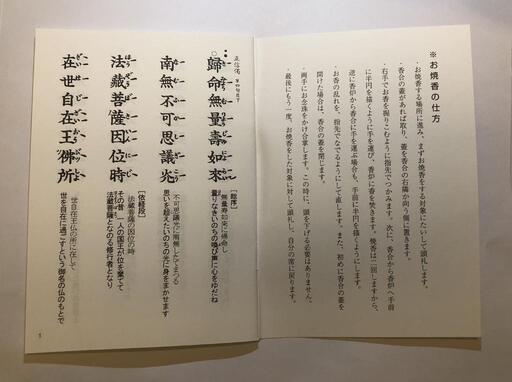 ※お焼香の仕方
・お焼香する場所に進み、まずお焼香をする対象にたいして頭礼します。
・香合の蓋があれば取り、蓋を香合の右隣か向う側に置きます。
・右手でお香を握りこむように指先でつかみます。次に、香合から香炉へ手前
に半円を描くように手を運び、香炉に香を焚きます。焼香は二回しますから、
逆に香炉から香合に手を運ぶ場合も、手前に半円を描くようにします。
・お香の乱れを、指先でなでるようにして直します。また、初めに香合の蓋を
開けた場合は、香合の蓋を閉じます。
・両手にお念珠をかけ合掌します。この時に、頭を下げる必要はありません。
・最後にもう一度、お焼香をした対象に対して頭礼し、自分の席に戻ります。
正信偈
歸命無量壽如來
南無不可思議光
法藏菩薩因位時
在世自在王佛所
【総序】
無量寿如来に帰命し
量りなきいのちの喚び声に心をゆだね
不可思議光に南無したてまつる
思いを超えたいのちの光に身をまかせます
【依経段】
法蔵菩薩の因位の時
その昔、一人の国王が位を棄てて
法蔵菩薩となのる修行者となり
世自在王仏の所に在して
世を自在に過ごすという御名の仏のもとで
1